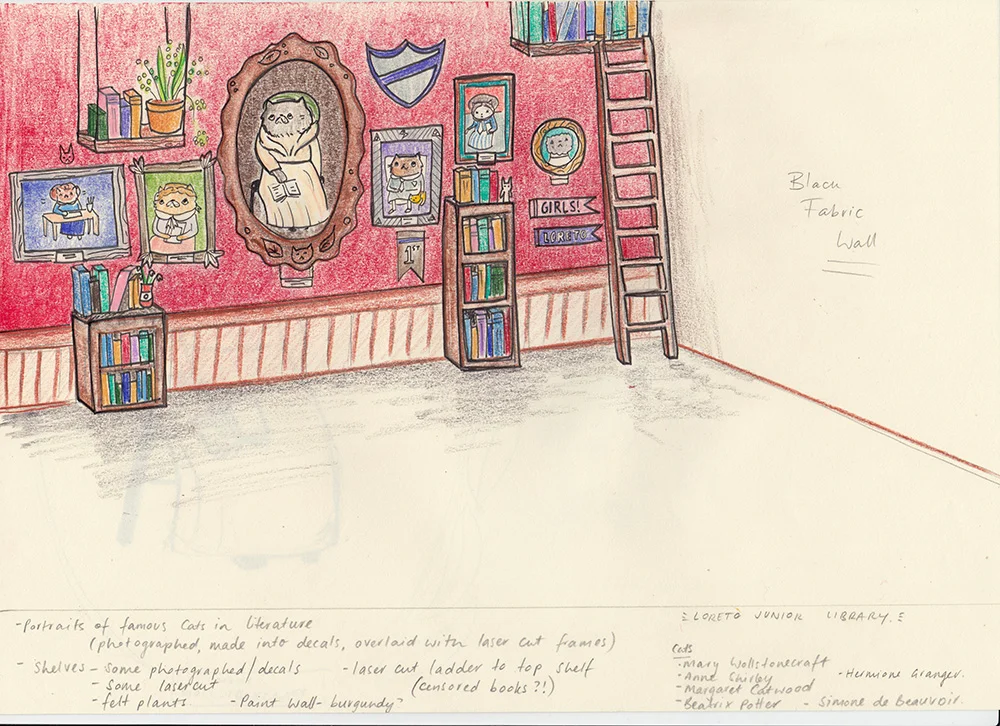 GIRLS!
LORETO
1ST
Black
Fabric
Wall
-Portraits of famous cats in literature
(photographed, made into decals, overlaid with laser cut frames)
- Shelves - Some photographed/decals
- Some lasercut
- felt plants
- laser cut ladder to top shelf
(censored books?!)
- Paint wall- burgundy?
LORETO JUNIOR LIBRARY.
Cats
-Mary Wollstonecraft
-Anne Shirley
-Margaret Catwood
-Beatrix Potter
-Hermione Granger.
- Simone de Beauvoir.